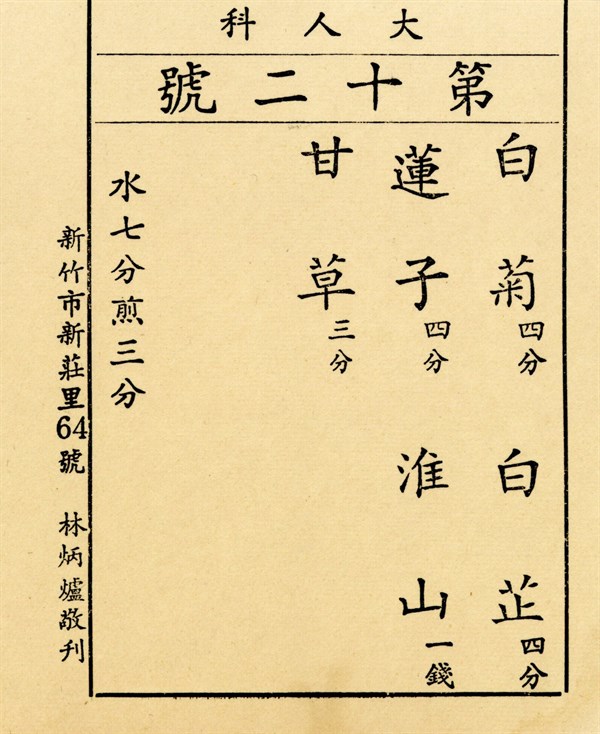 大人科
第十二號
白菊四分　白芷四分
蓮子四分　淮山一錢
甘草三分
水七分煎三分
新竹市新莊里64號　林炳爐敬刊